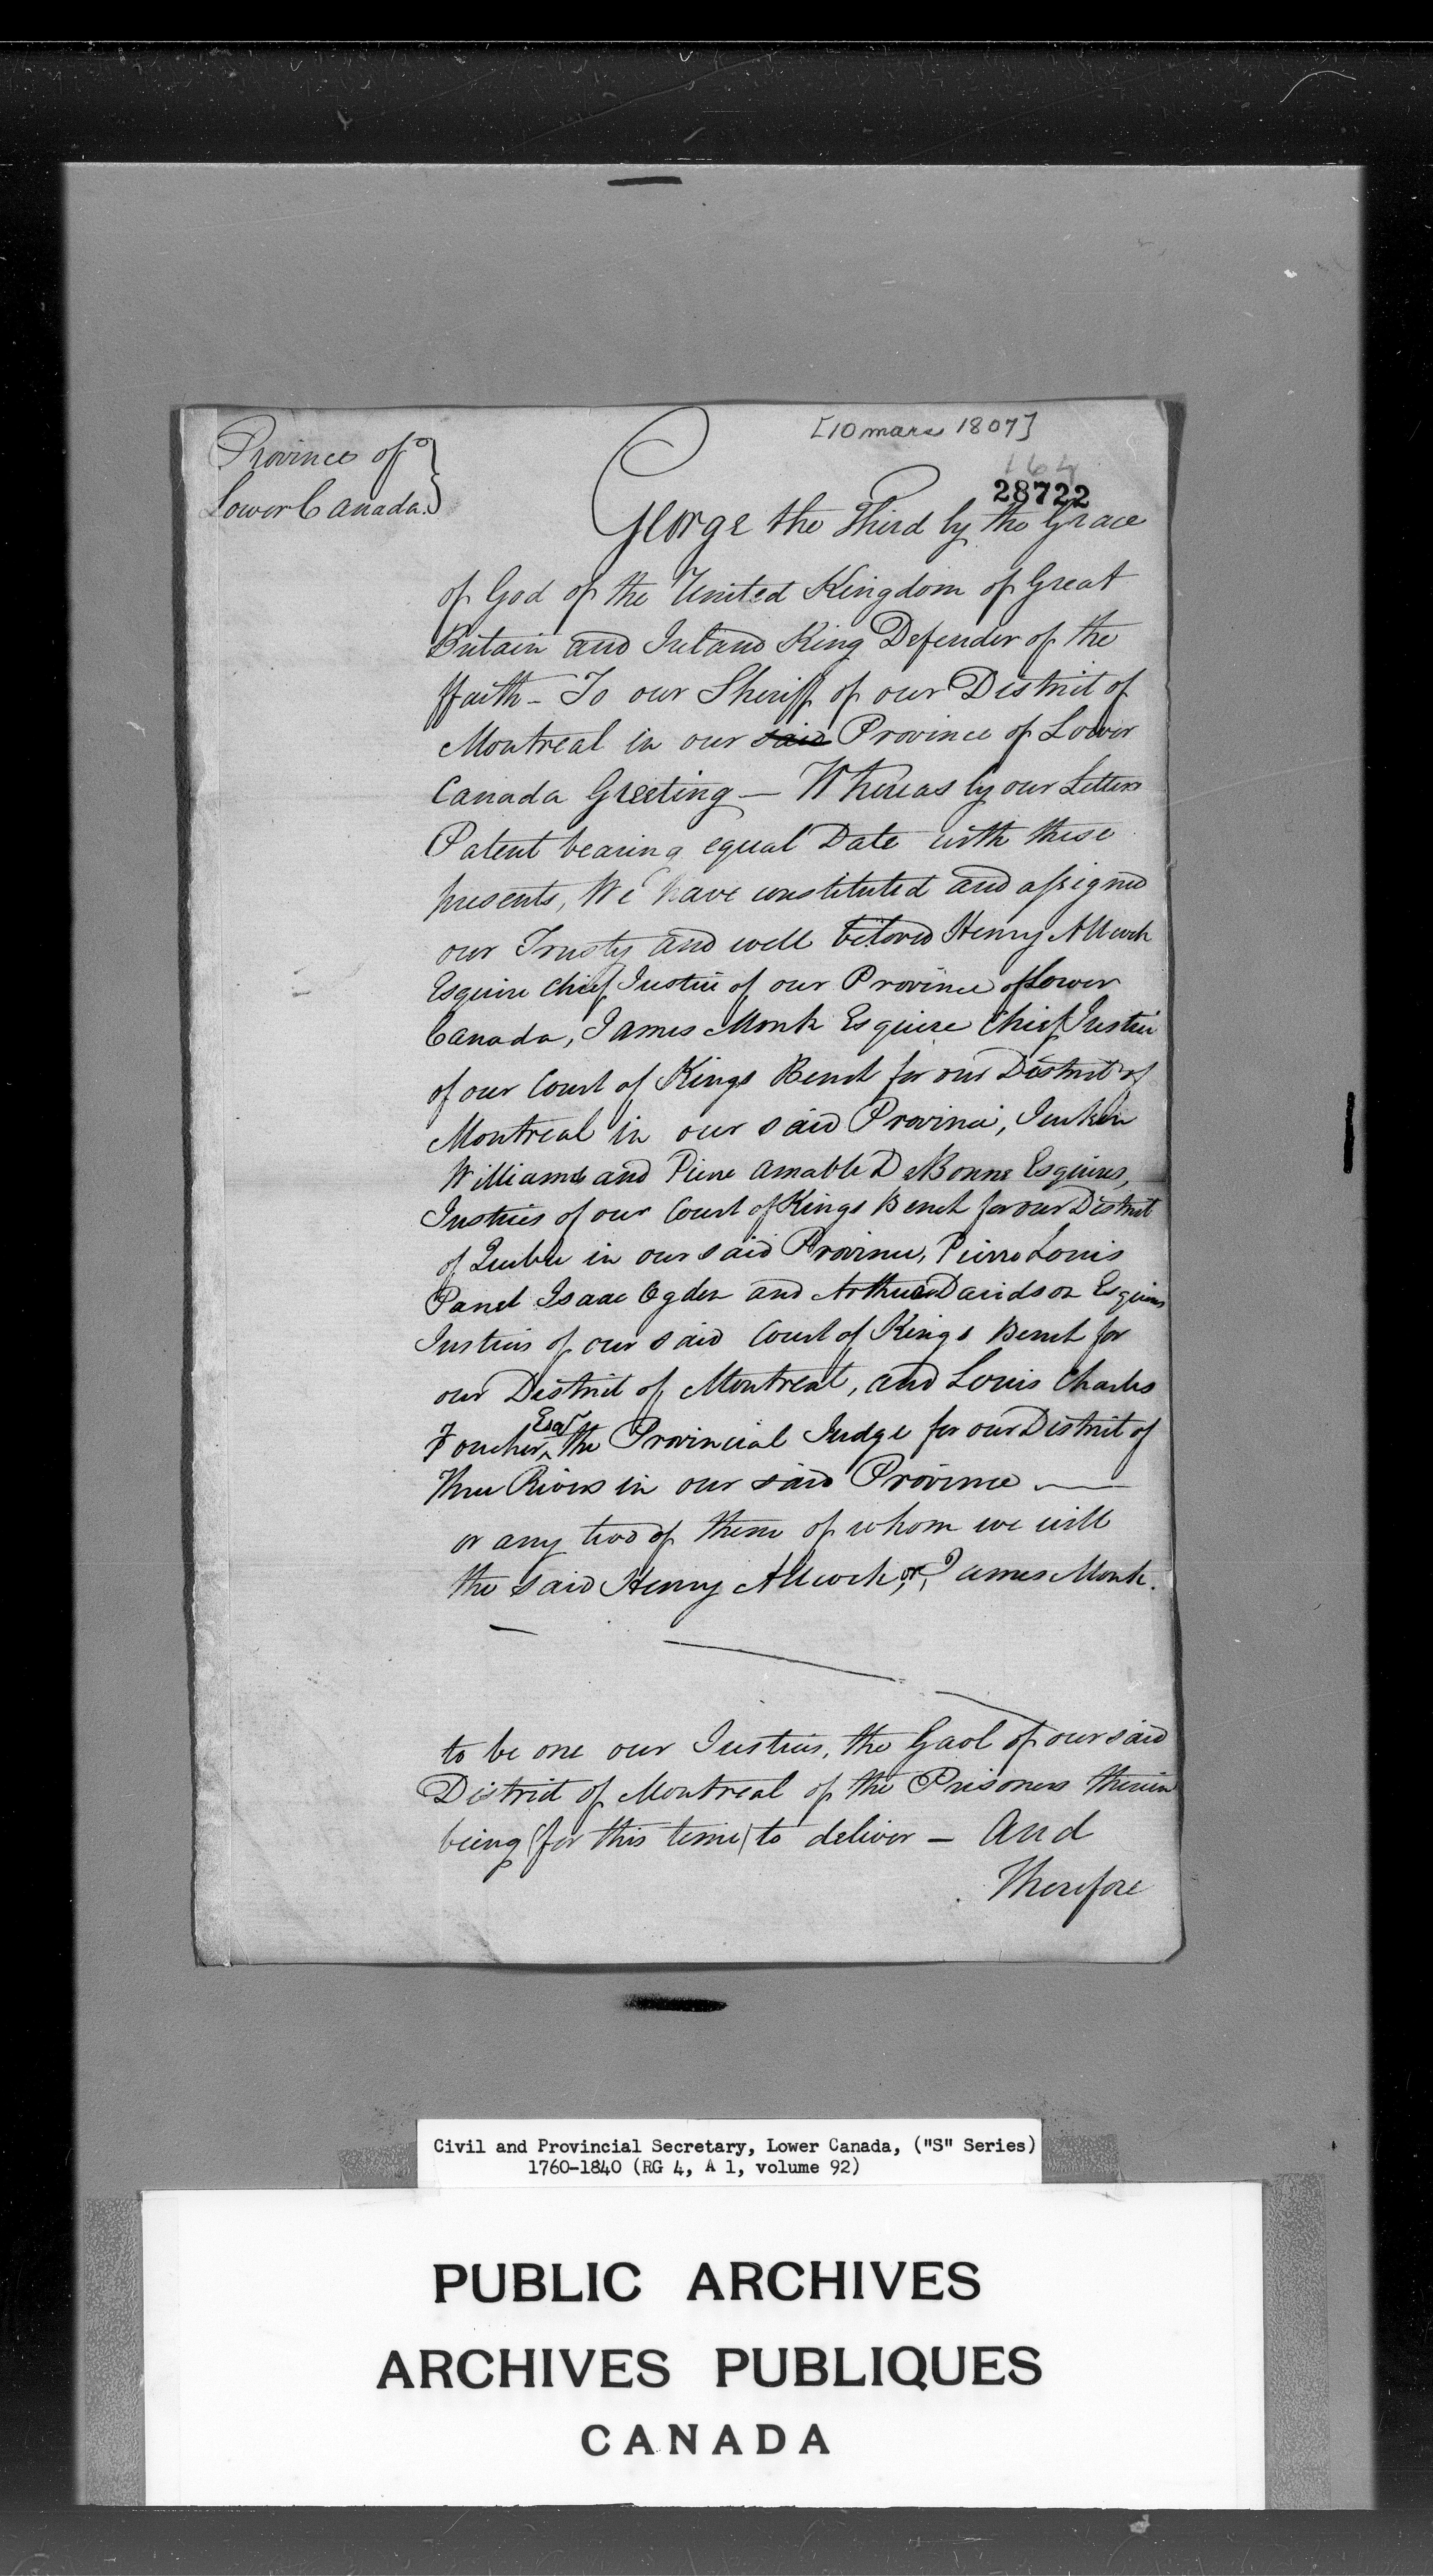 Province of }
Lower Canada. }
[10 mars 1807]
164
28722
George the Third by the Grace
of God of the United Kingdom of Great
Britain and Ireland King Defender of the
ffaith - To our Sheriff of our District of
Montreal in our said Province of Lower
Canada Greeting - Whereas by our Letters
Patent bearing equal Date with these
presents, We have constituted and assigned
our Trusty and well beloved Henry Allcock
Esquire Chief Justice of our Province of Lower
Canada, James Monk Esquire Chief Justice
of our Court of Kings Bench for our District of
Montreal in our said Province, Jenkin
Williams and Pierre Amable DeBonne Esquires,
Justices of our Court of Kings Bench for our District
of Quebec in our said Province, Pierre Louis
Panet Isaac Ogden and Arthur Davidson Esquires
Justices of our said Court of Kings Bench for
our District of Montreal, and Louis Charles
Foucher, Esqr the Provincial Judge for our District of
Three Rivers in our said Province
or any two of them of whom we will
the said Henry Allcock, or, James Monk.
to be one our Justices, the Gaol of our said
District of Montreal of the Prisoners therein
being (for this time) to deliver - And
Therefore
Civil and Provincial Secretary, Lower Canada, ("S" Series)
1760-1840 (RG 4, A 1, volume 92)
PUBLIC ARCHIVES
ARCHIVES PUBLIQUES
CANADA